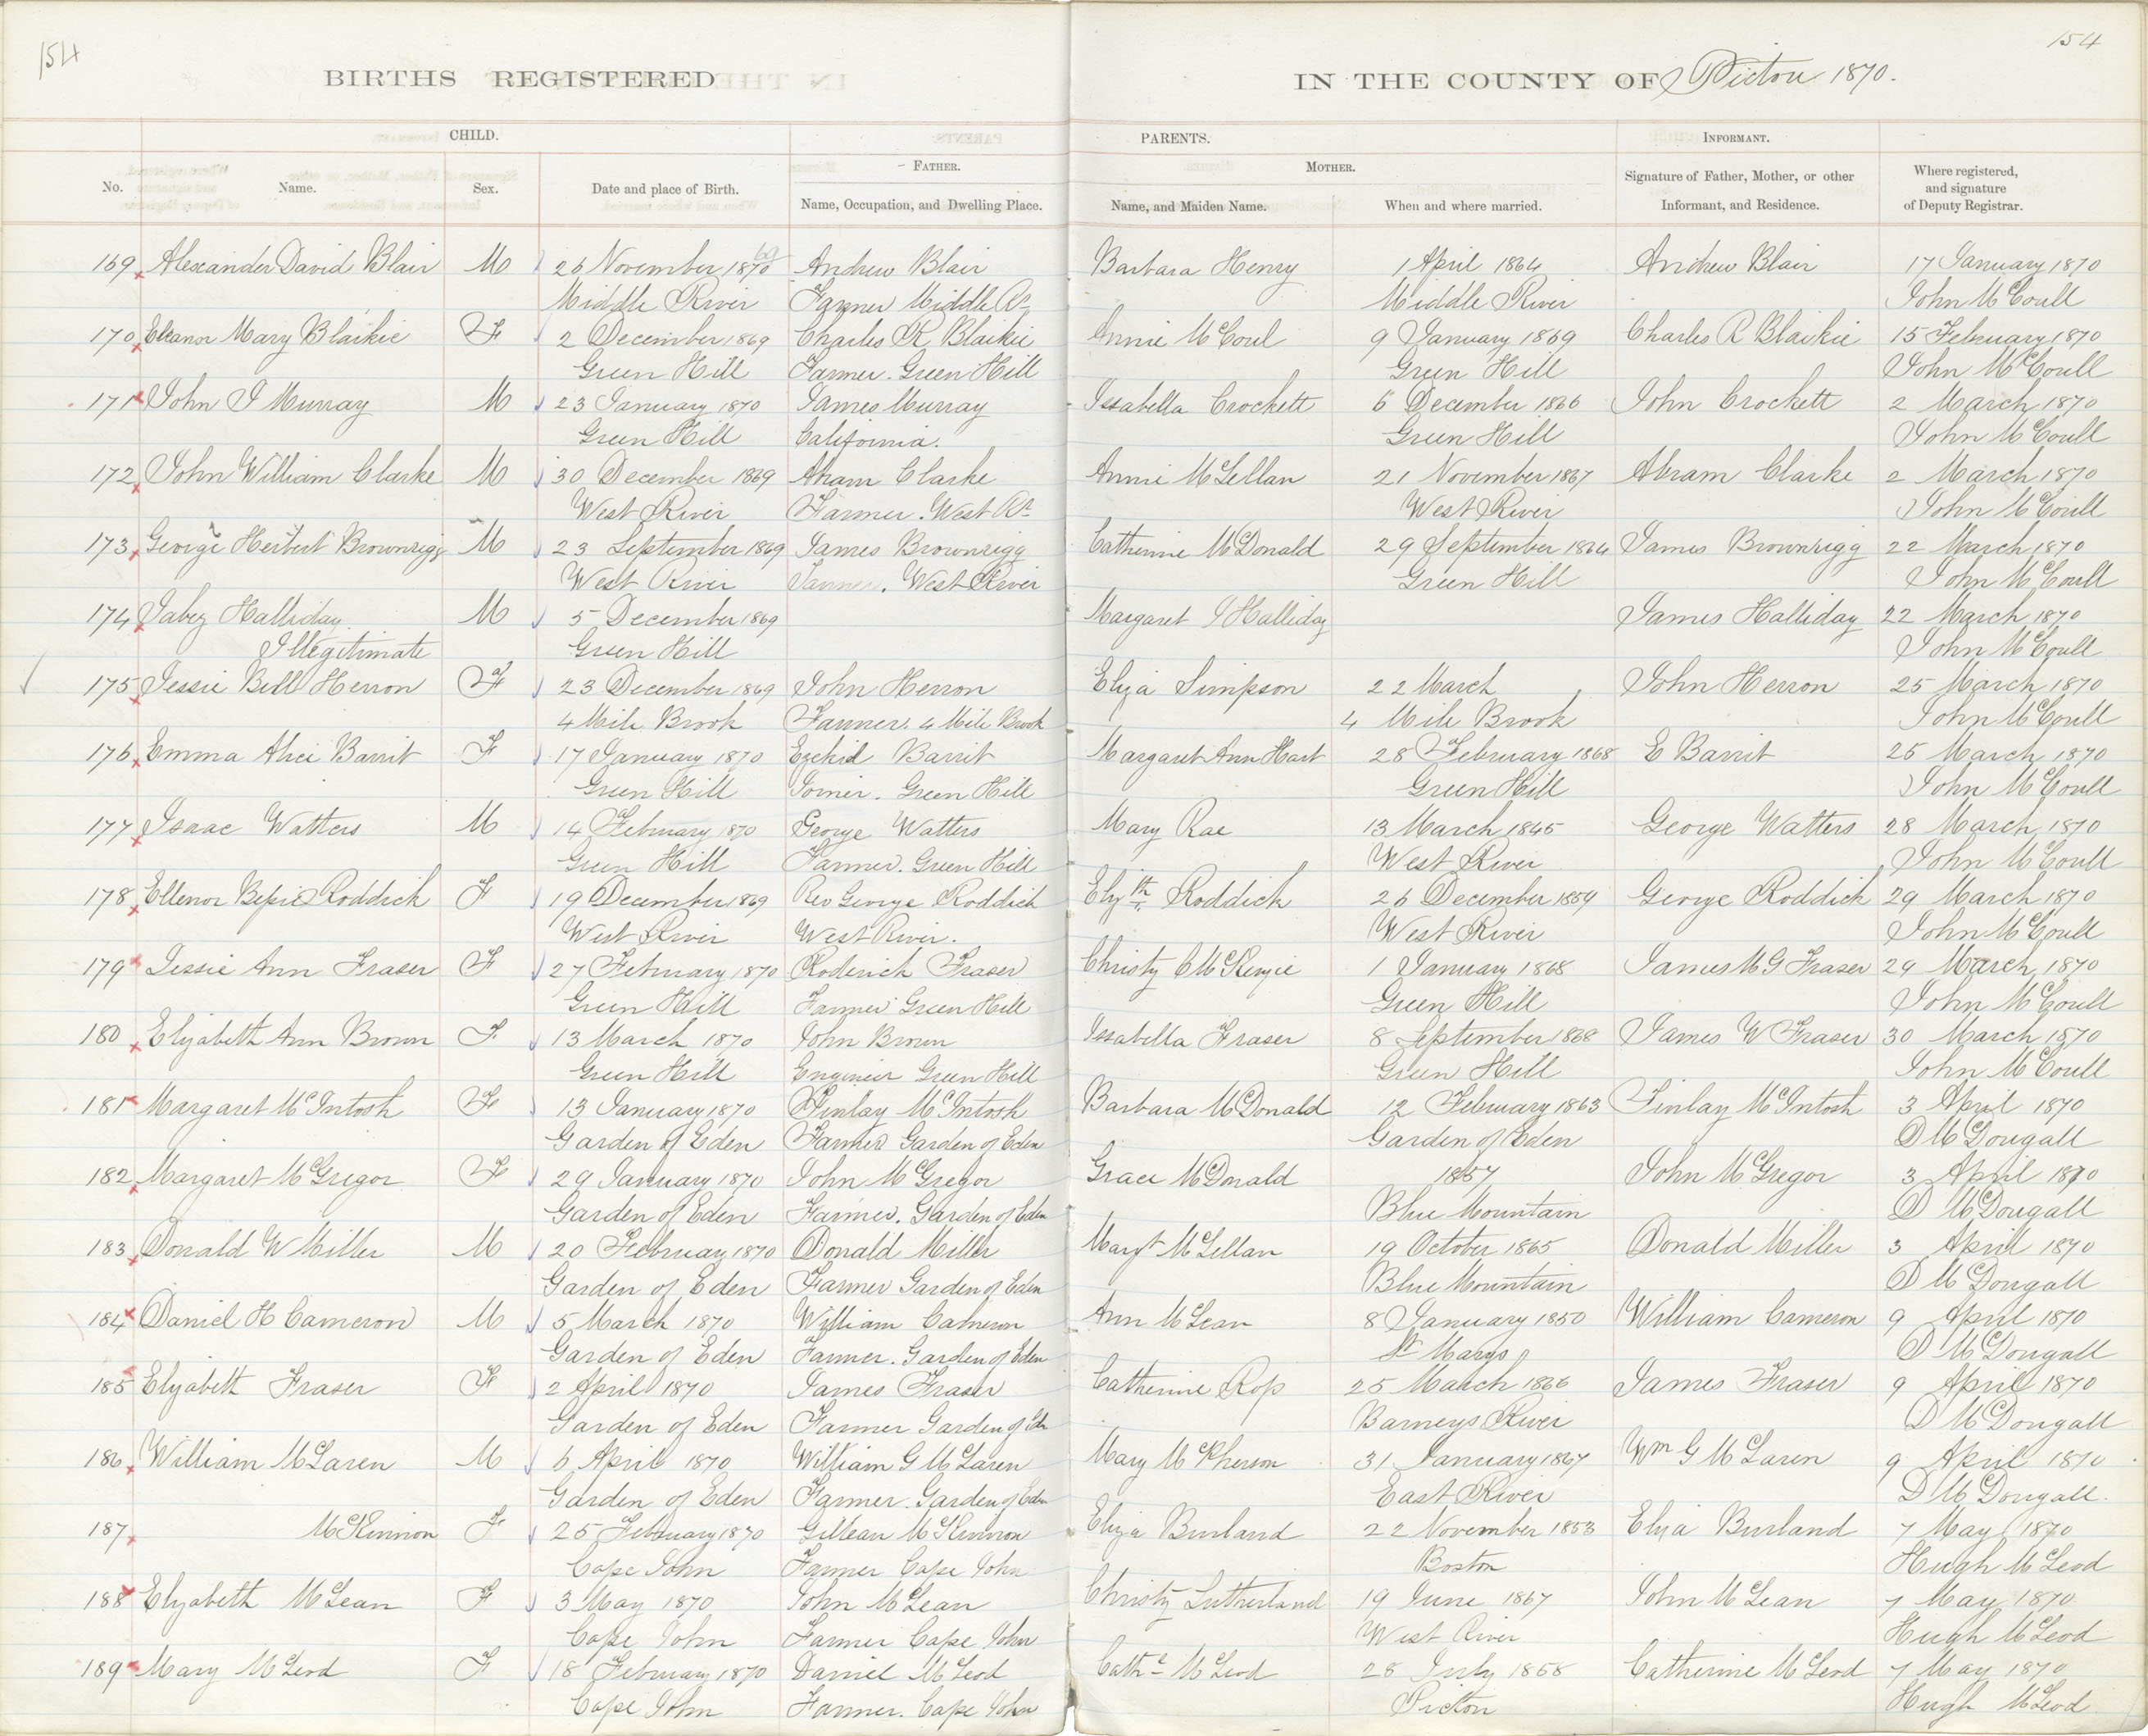 154
154
BIRTHS REGISTERED
IN THE COUNTY OF Pictou 1870.
CHILD.
PARENTS.
INFORMANT.
FATHER.
MOTHER.
No.
Name.
Sex.
Date and place of Birth.
Name, Occupation, and Dwelling Place.
Name, and Maiden Name.
When and where married.
Signature of Father, Mother, or other
Informant, and Residence.
Where registered,
and signature
of Deputy Registrar.
169 Alexander David Blair M 26 November 1870 69 Andrew Blair Barbara Henry 1 April 1864 Andrew Blair 17 January 1870
Middle River Farmer Middle Rr Middle River John McCoull
170 Eleanor Mary Blaikie F 2 December 1869 Charles R Blaikie Annie McCoul 9 January 1869 Charles R Blaikie 15 February 1870
Green Hill Farmer. Green Hill Green Hill John McCoull
171 John J Murray M 23 January 1870 James Murray Issabella Crockett 6 December 1866 John Crockett 2 March 1870
Green Hill California. Green Hill John McCoull
172 John William Clarke M 30 December 1869 Abram Clarke Annie McLellan 21 November 1867 Abram Clarke 2 March 1870
West River Farmer. West Rr West River John McCoull
173 George Herbert Brownrigg M 23 September 1869 James Brownrigg Catherine McDonald 29 September 1864 James Brownrigg 22 March 1870
West River West River Green Hill John McCoull
174 Jabez Halliday M 5 December 1869 Margaret J Halliday James Halliday 22 March 1870
Illegitimate Green Hill John McCoull
175 Jessie Bell Herron F 23 December 1869 John Herron Eliza Simpson 22 March John Herron 25 March 1870
4 Mile Brook Farmer. 4 Mile Brook 4 Mile Brook John McCoull
176 Emma Alice Barrit F 17 January 1870 Ezekiel Barrit Margaret Ann Hart 28 February 1868 E Barrit 25 March 1870
Green Hill Joiner. Green Hill Green Hill John McCoull
177 Isaac Watters M 14 February 1870 George Watters Mary Rae 13 March 1845 George Watters 28 March 1870
Green Hill Farmer. Green Hill West River John McCoull
178 Ellenor Bessie Roddick F 19 December 1869 Rev George Roddick Elizth Roddick 26 December 1859 George Roddick 29 March 1870
West River West River. West River John McCoull
179 Jessie Ann Fraser F 27 February 1870 Roderick Fraser Christy C McKenzie 1 January 1868 James McG Fraser 29 March 1870
Green Hill Farmer Green Hill Green Hill John McCoull
180 Elizabeth Ann Brown F. 13 March 1870 John Brown Issabella Fraser 8 September 1868 James W Fraser 30 March 1870
Green Hill Engineer Green Hill Green Hill John McCoull
181 Margaret McIntosh F 13 January 1870 Finlay McIntosh Barbara McDonald 12 February 1863 Finlay McIntosh 3 April 1870
Garden of Eden Farmer Garden of Eden Garden of Eden D McDougall
182 Margaret McGregor F 29 January 1870 John McGregor Grace McDonald 1857 John McGregor 3 April 1870
Garden of Eden Farmer. Garden of Eden Blue Mountain D McDougall
183 Donald W Miller M 20 February 1870 Donald Miller Margt McLellan 19 October 1865 Donald Miller 3 April 1870
Garden of Eden Farmer Garden of Eden Blue Mountain D McDougall
184 Daniel H Cameron M 5 March 1870 William Cameron Ann McLean 8 January 1850 William Cameron 9 April 1870
Garden of Eden Farmer. Garden of Eden St Marys D McDougall
185 Elizabeth Fraser F 2 April 1870 James Fraser Catherine Ross 25 March 1866 James Fraser 9 April 1870
Garden of Eden Farmer Garden of Edn Barneys River D McDougall
186 William McLaren M 6 April 1870 William G McLaren Mary McPherson 31 January 1867 Wm G McLaren 9 April 1870
Garden of Eden Farmer. Garden of Eden East River D McDougall.
187 McKinnon F 25 February 1870 Gillean McKinnon Eliza Burland 22 November 1853 Eliza Burland 7 May 1870
Cape John Farmer Cape John Boston Hugh McLeod
188 Elizabeth McLean F 3 May 1870 John McLean Christy Sutherland 19 June 1867 John McLean 7 May 1870
Cape John Farmer Cape John West River Hugh McLeod
189 Mary McLeod F 18 February 1870 Daniel McLeod Cathe McLeod 28 July 1858 Catherine McLeod 7 May 1870
Cape John Farmer. Cape John Pictou Hugh McLeod